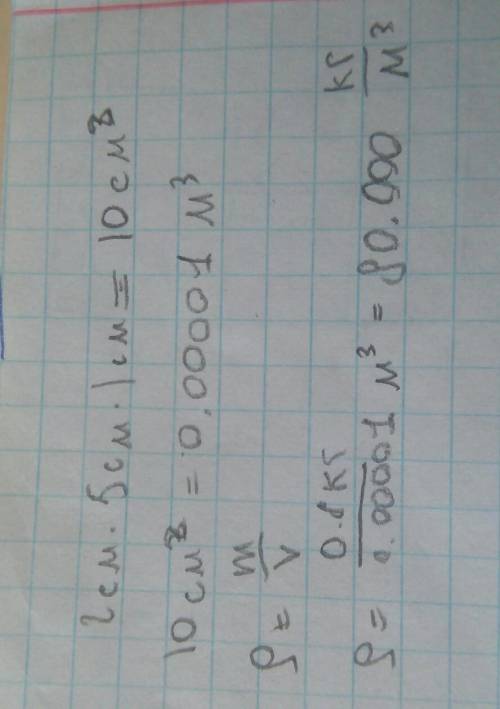 2см · 5см · 1см = 10см³
10см³ = 0,00001 м³
ρ = m/V
ρ = 0.8кг/0.00001 м³ = 80.000 кг/м³